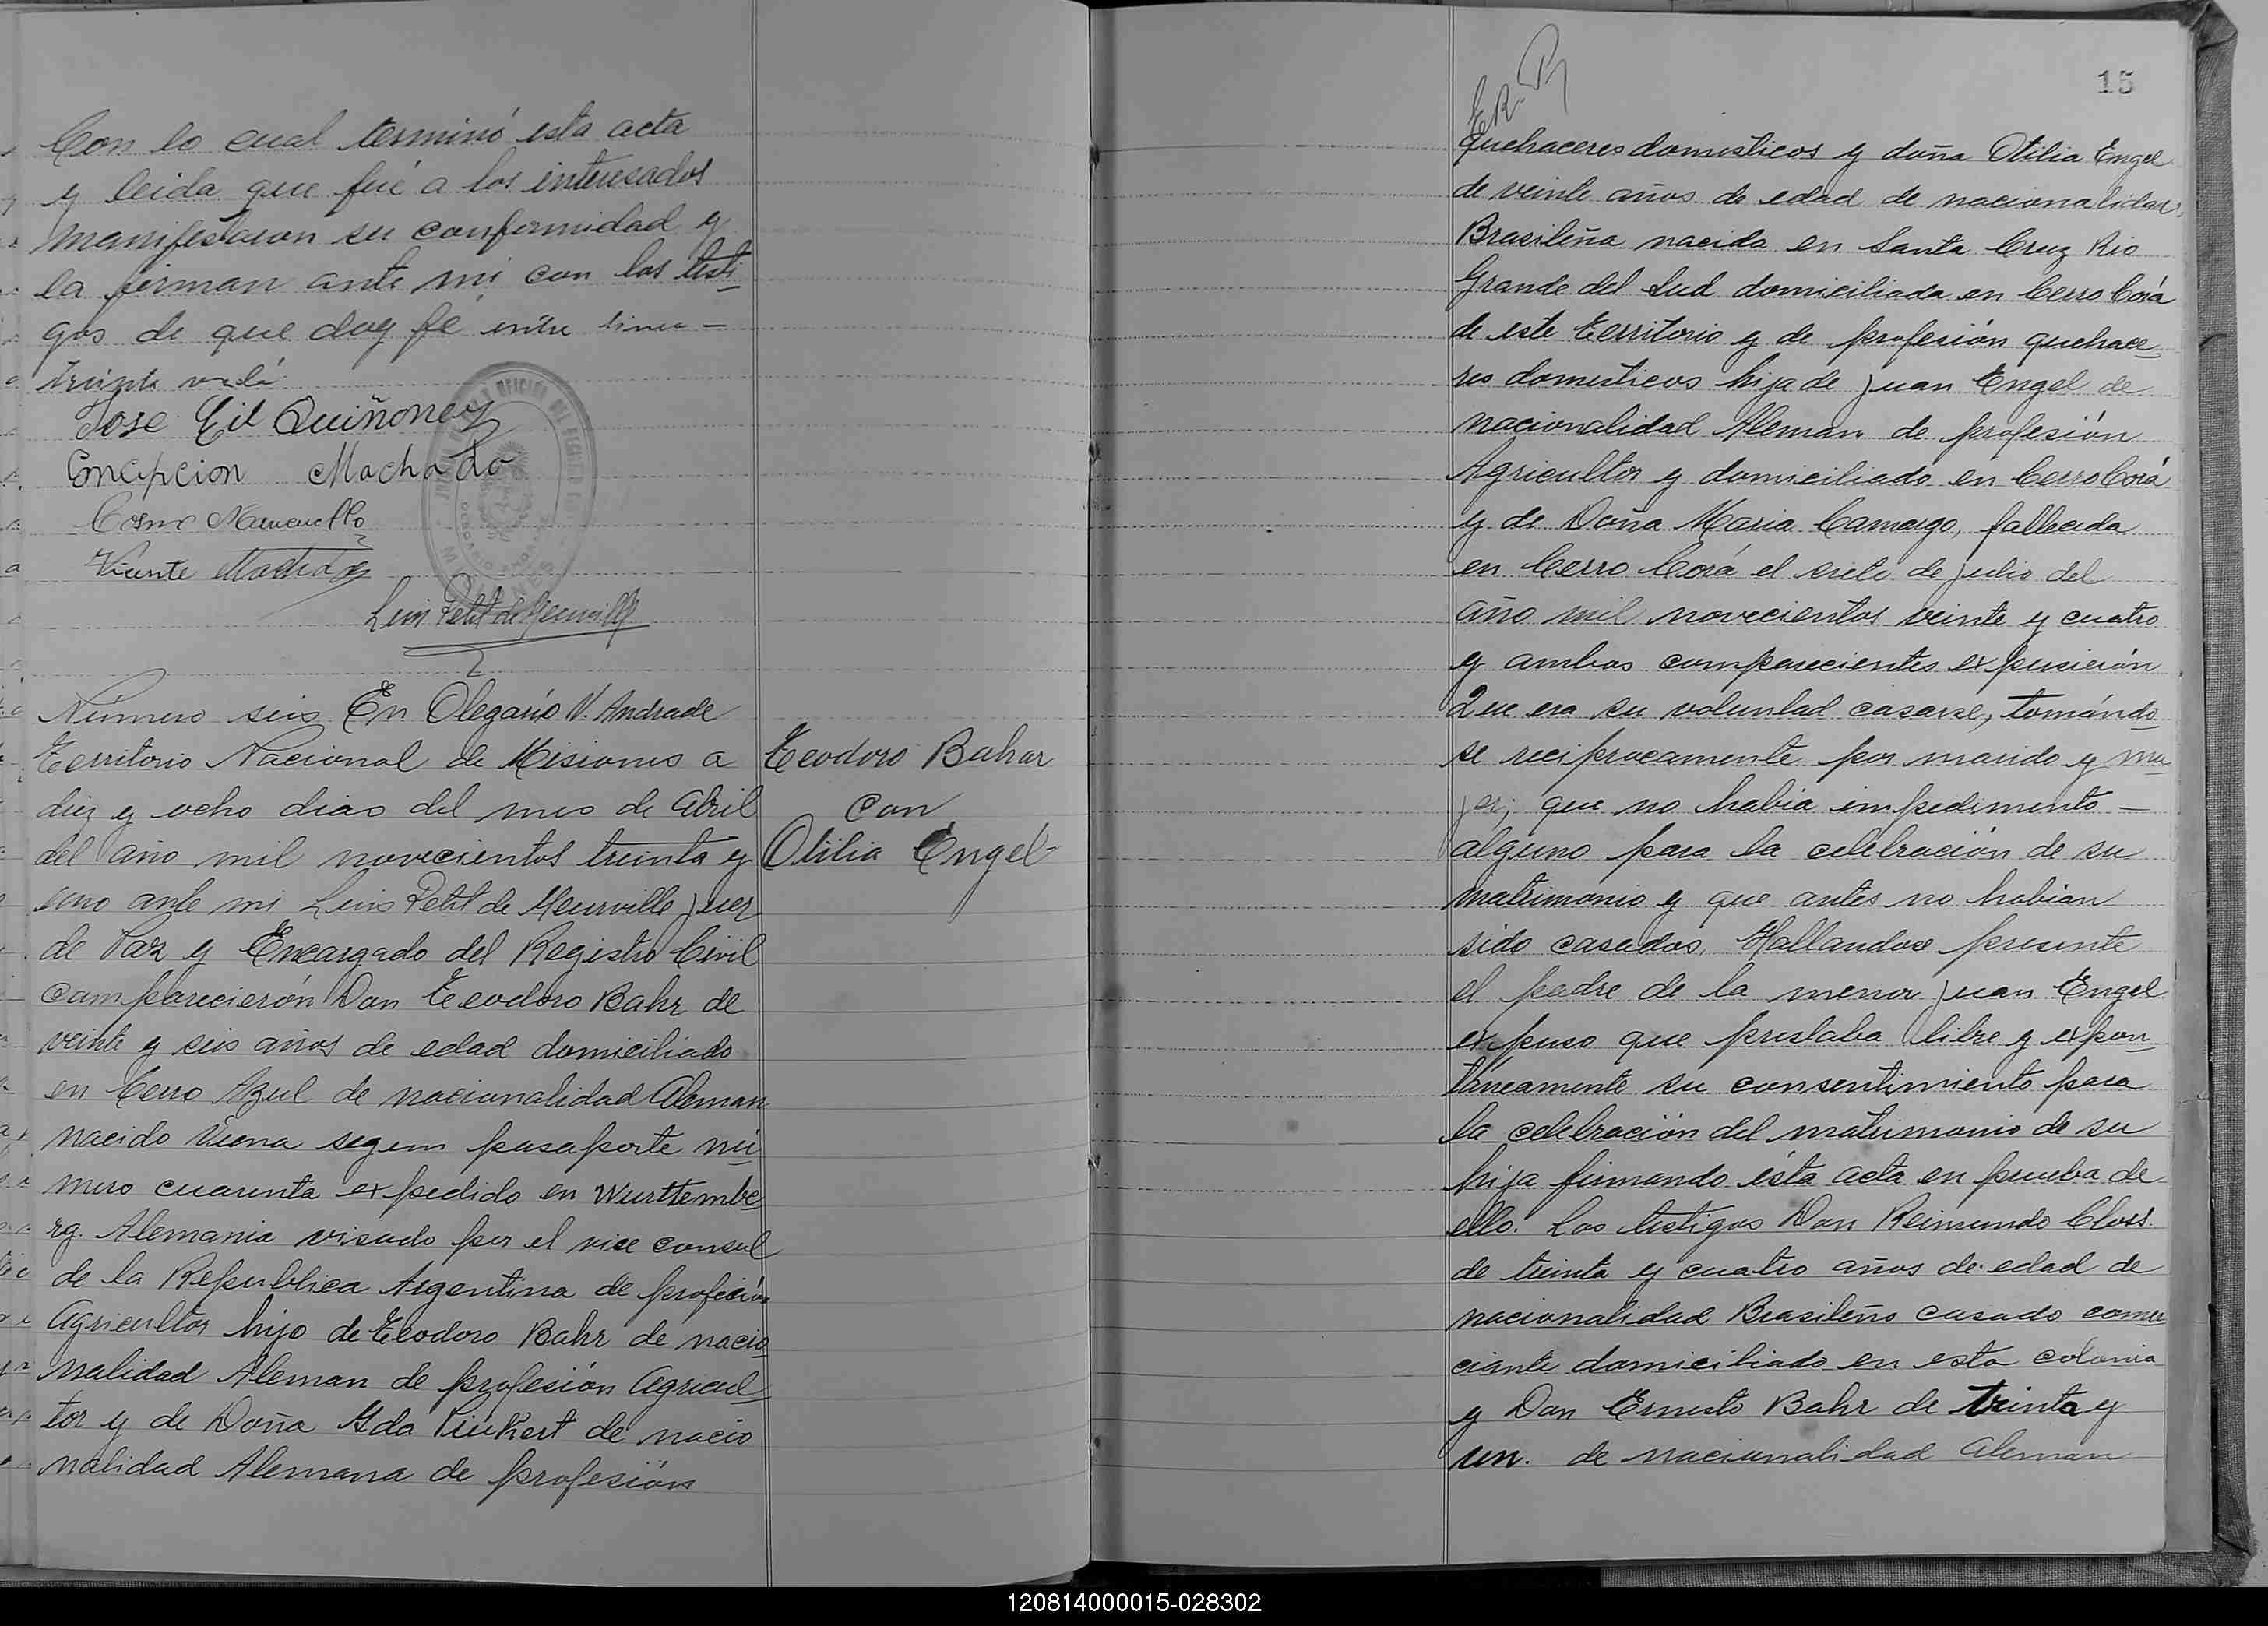 Con lo cual terminó esta acta
y leida que fué a los interesados
manifestaron su conformidad y
la firman ante mi con los testi
gos de que doy fé entre linea —
treinta vale
Jose Gil Quiñonez
Concepcion Machado
Cosme
Vicente Machado
Luis Petit de Meurville
Número seis En Olegario V. Andrade
Territorio Nacional de Misiones a
diez y ocho dias del mes de Abril
del año mil novecientos treinta y
uno ante mi Luis Petit de Meurville Juez
de Paz y Encargado del Registro Civil
comparecierón Don Teodoro Bahr de
veinte y seis años de edad domiciliado
en Cerro Azul de nacionalidad Aleman
nacido Viena segun pasaporte nú
mero cuarenta expedido en Wurttembe
rg. Alemania visado por el vice consul
de la Republica Argentina de profesión
Agricultor hijo de Teodoro Bahr de nacio
nalidad Aleman de profesión Agricul
tor y de Doña Ida de nacio
nalidad Alemana de profesión
Teodoro Bahar
con
Otilia Engel
E.R.
15
quehaceres domesticos y doña Otilia Engel
de veinte años de edad de nacionalidad
Brasileña nacida en Santa Cruz Rio
Grande del Sud domiciliada en Cerro Corá
de este Territorio y de profesión quehace
res domesticos hija de Juan Engel de
nacionalidad Aleman de profesión
Agricultor y domiciliado en Cerro Corá
y de Doña Maria Camargo, fallecida
en Cerro Corá el siete de Julio del
año mil novecientos veinte y cuatro
y ambos comparecientes expusierón
Que era su voluntad casarse, tomándo
se reciprocamente por marido y mu
jer; que no habia impedimento —
alguno para la celebración de su
matrimonio y que antes no habian
sido casados. Hallandose presente
el padre de la menor Juan Engel
expuso que prestaba libre y expon
táneamente su consentimiento para
la celebración del matrimonio de su
hija firmando ésta acta en prueba de
ello. Los testigos Don Reimundo Closs.
de treinta y cuatro años de edad de
nacionalidad Brasileño casado comer
ciante domiciliado en esta colonia
y Don Ernesto Bahr de treinta y
un. de nacionalidad Aleman
120814000015-028302